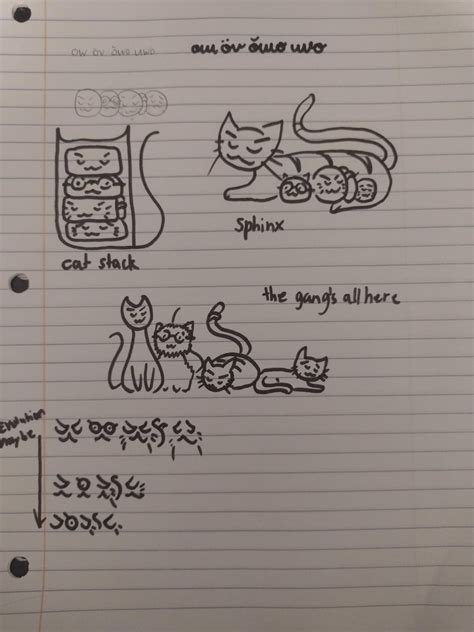 ow öv ŏwo uwo
ow öv ŏwo uwo
cat stack
Sphinx
the gang's all here
Evolution
maybe